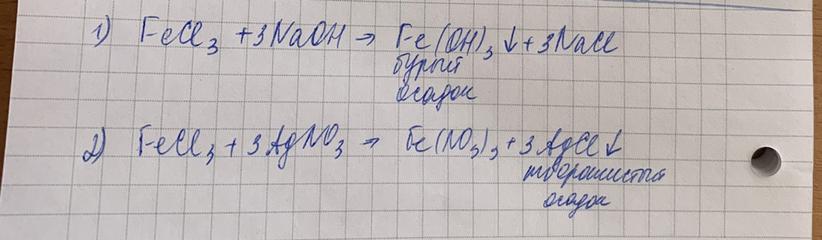 1) FeCl₃ + 3NaOH → Fe(OH)₃ ↓ + 3NaCl
бурый
осадок
2) FeCl₃ + 3AgNO₃ → Fe(NO₃)₃ + 3AgCl↓
творожистый
осадок